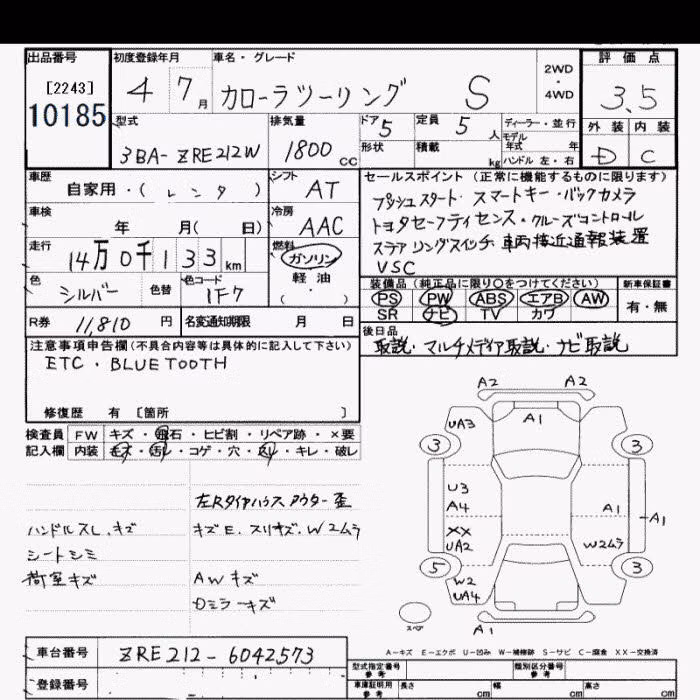 出品番号 初度登録年月 車名・グレード 評価点
[2243]
10185
4 7月 カローラツーリング S 2WD・4WD 3.5
外装 内装
D C
型式 排気量 ドア 5 定員 5人 ディーラー・並行
モデル年式 年
3BA-ZRE212W 1800cc 形状 積載 kg ハンドル 左・右
車歴 シフト セールスポイント (正常に機能するものに限ります)
自家用・(レンタ) AT プッシュスタート・スマートキー・バックカメラ
車検 冷房 トヨタセーフティセンス・クルーズコントロール
年 月( 日) AAC ステアリングスイッチ 車両接近通報装置
走行 燃料 VSC
14万0千133km ガソリン
軽油
( ・ )
装備品 (純正品に限り○をつけてください) 新車保証書
PS PW ABS エアB AW 有・無
SR ナビ TV カワ
色 色替 色コード
シルバー 1F7
R券 11,810円 名変通知期限 月 日
後日品
取説・マルチメディア取説・ナビ取説
注意事項申告欄(不具合内容等は具体的に記入して下さい)
ETC・BLUETOOTH
修復歴 有 [箇所 ]
検査員 FW キズ・飛石・ヒビ割・リペア跡・×要
記入欄 内装 キズ・汚レ・コゲ・穴・スレ・キレ・破レ
左Rタイヤハウス アウター歪
ハンドルスレ、キズ キズE、スリキズ、W2ムラ
シートシミ
荷室キズ AWキズ
Dミラーキズ
A2 A2
UA3 A1
3 3
U3
A4 A1 A1
XX
UA2 W2ムラ
5 3
W2
UA4
スペア A1
A-キズ E-エクボ U-凹み W-補修跡 S-サビ C-腐食 XX-交換済
車台番号 ZRE212-6042573
登録番号
型式指定番号 参考 類別区分番号 参考
車庫証明用 参考 長さ cm 幅 cm 高さ cm